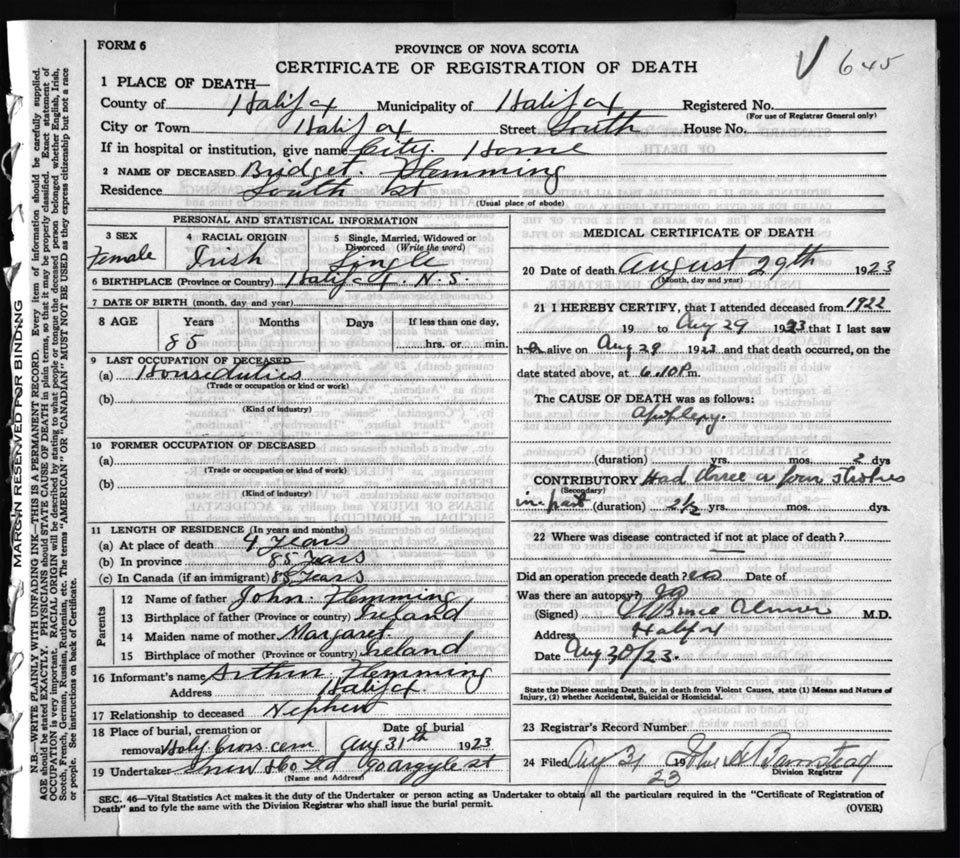 FORM 6
PROVINCE OF NOVA SCOTIA
CERTIFICATE OF REGISTRATION OF DEATH
√ 645
1 PLACE OF DEATH—
County of Halifax Municipality of Halifax Registered No.
(For use of Registrar General only)
City or Town Halifax Street South House No.
If in hospital or institution, give name City Home
2 NAME OF DECEASED Bridget Flemming
Residence South St
(Usual place of abode)
PERSONAL AND STATISTICAL INFORMATION
3 SEX 4 RACIAL ORIGIN 5 Single, Married, Widowed or Divorced (Write the word)
Female Irish Single
6 BIRTHPLACE (Province or Country) Halifax N.S.
7 DATE OF BIRTH (month, day and year)
8 AGE Years Months Days If less than one day,
85 hrs. or min.
9 LAST OCCUPATION OF DECEASED
(a) Houseduties
(Trade or occupation or kind or work)
(b)
(Kind of industry)
10 FORMER OCCUPATION OF DECEASED
(a)
(Trade or occupation or kind of work)
(b)
(Kind of industry)
11 LENGTH OF RESIDENCE (In years and months)
(a) At place of death 4 years
(b) In province 85 years
(c) In Canada (if an immigrant) 85 years
Parents
12 Name of father John Flemming
13 Birthplace of father (Province or country) Ireland
14 Maiden name of mother Margaret
15 Birthplace of mother (Province or country) Ireland
16 Informant's name Arthur Flemming
Address Halifax
17 Relationship to deceased Nephew
18 Place of burial, cremation or removal Date of burial
Holy Cross cem Aug 31th 1923
19 Undertaker Snow & Co Ltd 90 Argyle st
(Name and Address)
MEDICAL CERTIFICATE OF DEATH
20 Date of death August 29th 1923
(Month, day and year)
21 I HEREBY CERTIFY, that I attended deceased from 1922
19 to Aug 29 1923 that I last saw
her alive on Aug 29 1923 and that death occurred, on the
date stated above, at 6.10 P m.
The CAUSE OF DEATH was as follows:
Apoplexy.
(duration) yrs. mos. 2 dys
CONTRIBUTORY Had three or four strokes
(Secondary)
in past (duration) 2½ yrs. mos. dys.
22 Where was disease contracted if not at place of death?
Did an operation precede death? no Date of
Was there an autopsy? no
(Signed) Bruce Almon M.D.
Address Halifax
Date Aug 30/23.
State the Disease causing Death, or in death from Violent Causes, state (1) Means and Nature of
Injury, (2) whether Accidental, Suicidal or Homicidal.
23 Registrar's Record Number
24 Filed Aug 31 19 23
Division Registrar
SEC. 46—Vital Statistics Act makes it the duty of the Undertaker or person acting as Undertaker to obtain all the particulars required in the "Certificate of Registration of
Death" and to fyle the same with the Division Registrar who shall issue the burial permit.
(OVER)
MARGIN RESERVED FOR BINDING
N.B.—WRITE PLAINLY WITH UNFADING INK—THIS IS A PERMANENT RECORD. Every item of information should be carefully supplied.
AGE should be stated EXACTLY. PHYSICIANS should STATE CAUSE OF DEATH in plain terms, so that it may be properly classified. Exact statement of
OCCUPATION is very important. RACIAL ORIGIN will be described by stating to what people or tongue the deceased person belonged whether English, Irish,
Scotch, French, German, Russian, Ruthenian, etc. The terms "AMERICAN" OR "CANADIAN" MUST NOT BE USED as they express citizenship but not a race
or people. See instructions on back of Certificate.